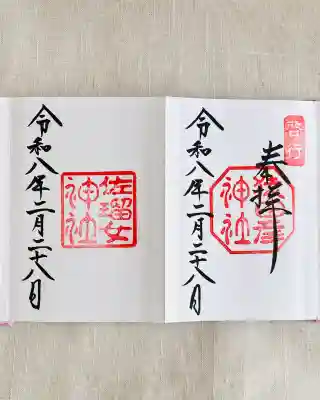 啓行
奉拝
彦
神社
令和八年二月二十八日
佐瑠女
神社
令和八年二月二十八日